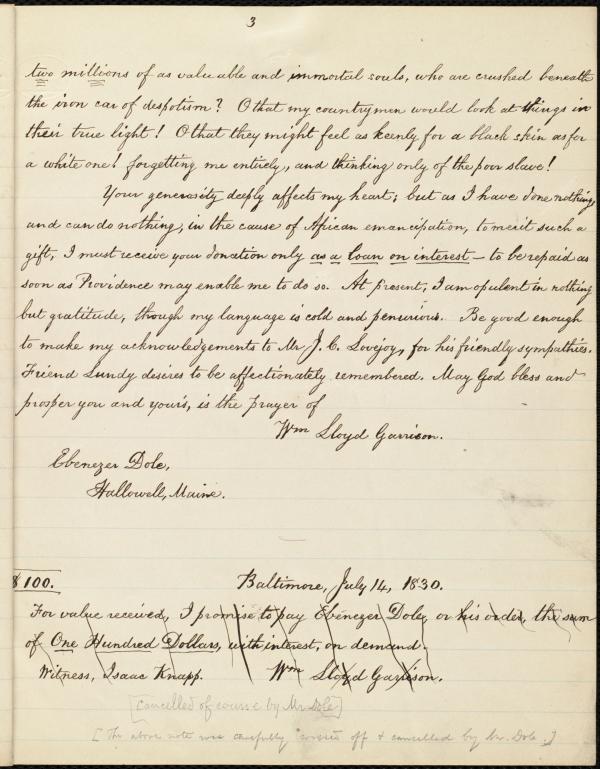 3
two millions of as valuable and immortal souls, who are crushed beneath
the iron car of despotism? O that my countrymen would look at things in
their true light! O that they might feel as keenly for a black skin as for
a white one! forgetting me entirely, and thinking only of the poor slave!
Your generosity deeply affects my heart; but as I have done nothing,
and can do nothing, in the cause of African emancipation, to merit such a
gift, I must receive your donation only as a loan on interest — to be repaid as
soon as Providence may enable me to do so. At present, I am opulent in nothing
but gratitude, though my language is cold and penurious. Be good enough
to make my acknowledgements to Mr J. C. Lovejoy, for his friendly sympathies.
Friend Lundy desires to be affectionately remembered. May God bless and
prosper you and yours, is the prayer of
Wm Lloyd Garrison.
Ebenezer Dole,
Hallowell, Maine.
$100. Baltimore, July 14, 1830.
For value received, I promise to pay Ebenezer Dole, or his order, the sum
of One Hundred Dollars, with interest, on demand.
Witness, Isaac Knapp. Wm Lloyd Garrison.
[Cancelled of course by Mr. Dole]
[The above note was carefully crossed off & cancelled by Mr. Dole.]